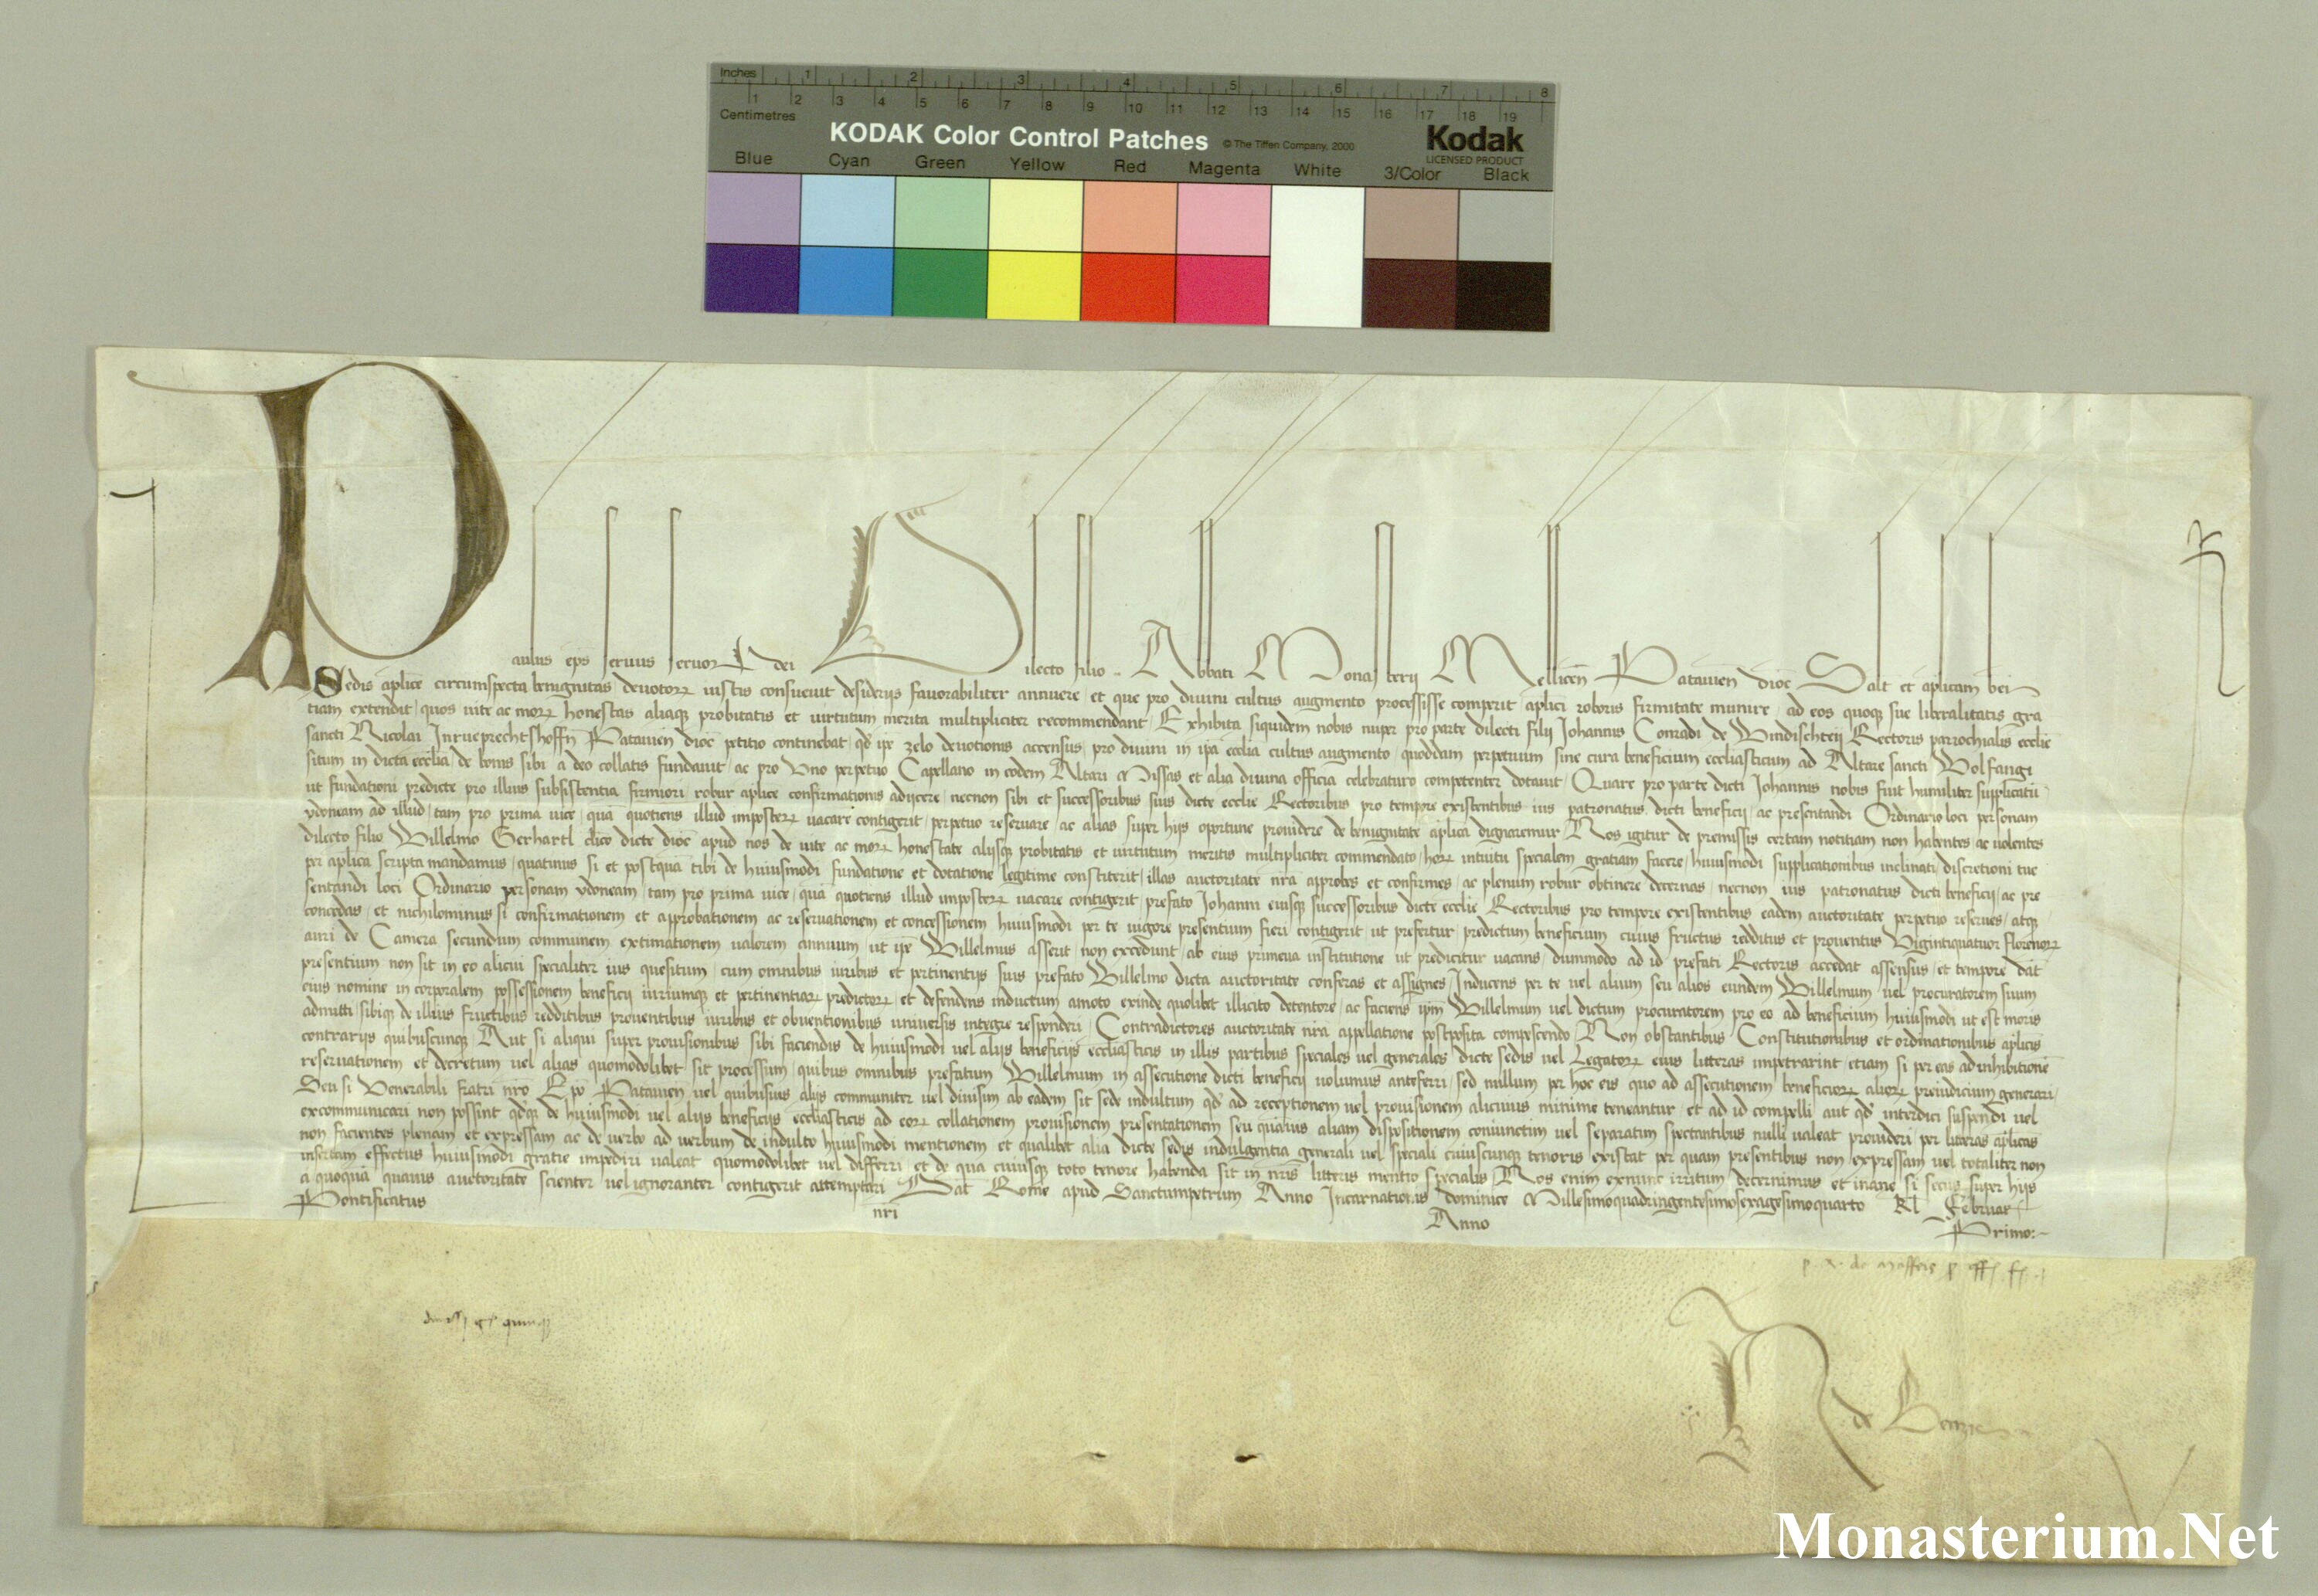 Inches 1 2 3 4 5 6 7 8
1 2 3 4 5 6 7 8 9 10 11 12 13 14 15 16 17 18 19
Centimetres
KODAK Color Control Patches © The Tiffen Company, 2000 Kodak
LICENSED PRODUCT
Blue Cyan Green Yellow Red Magenta White 3/Color Black
Paulus ep̄s seruus seruoꝝ dei Dilecto filio .. Abbati Monasterij Mellicen̄ Patauien̄ dioc̄ Salt̄ et ap̄licam ben̄
Sedis ap̄lice circumspecta benignitas deuotoꝝ iustis consueuit desiderijs fauorabiliter annuere et que pro diuini cultus augmento processisse comperit ap̄lici roboris firmitate munire ad eos quoqꝫ sue liberalitatis gra
tiam extendit quos uite ac moꝝ honestas aliaqꝫ probitatis et uirtutum merita multipliciter recommendant Exhibita siquidem nobis nuper pro parte dilecti filij Johannis Conradi de Windischteij Rectoris parrochialis ecclie
sancti Nicolai Inrueprechtshoffn̄ Patauien̄ dioc̄ petitio continebat qd̓ ip̄e zelo deuotionis accensus pro diuini in ip̄a ecclia cultus augmento quoddam perpetuum sine cura beneficium ecclesiasticum ad Altare sancti Wolfangi
situm in dicta ecclia de bonis sibi a deo collatis fundauit ac pro Uno perpetuo Capellano in eodem Altari Missas et alia diuina officia celebraturo competenter dotauit Quare pro parte dicti Johannis nobis fuit humiliter supplicatū
ut fundationi predicte pro illius subsistentia firmiori robur aplice confirmationis adijcere necnon sibi et successoribus suis dicte ecclie Rectoribus pro tempore existentibus ius patronatus dicti beneficij ac presentandi Ordinario loci personam
ydoneam ad illud tam pro prima uice quā quotiens illud imposteꝝ uacare contigerit perpetuo reseruare ac alias super hijs oportune prouidere de benignitate ap̄lica dignaremur Nos igitur de premissis certam notitiam non habentes ac uolentes
dilecto filio Willelmo Gerhartl clico dicte dioc̄ apud nos de uite ac moꝝ honestate alijsqꝫ probitatis et uirtutum meritis multipliciter commendato hoꝝ intuitu specialem gratiam facere huiusmodi supplicationibus inclinati discretioni tue
per aplica scripta mandamus quatinus si et postquā tibi de huiusmodi fundatione et dotatione legitime constiterit illas auctoritate nrā approbes et confirmes ac plenum robur obtinere decernas necnon ius patronatus dicti beneficij ac pre
sentandi loci Ordinario personam ydoneam tam pro prima uice quā quotiens illud imposteꝝ uacare contigerit prefato Johanni eiusqꝫ successoribus dicte ecclie Rectoribus pro tempore existentibus eadem auctoritate perpetuo reserues atqꝫ
concedas et nichilominus si confirmationem et approbationem ac reseruationem et concessionem huiusmodi per te uigore presentium fieri contigerit ut prefertur predictum beneficium cuius fructus redditus et prouentus Vigintiquatuor florenoꝝ
auri de Camera secundum communem extimationem ualorem annuum ut ip̄e Willelmus asserit non excedunt ab eius primeua institutione ut predicitur uacans dummodo ad id prefati Rectoris accedat assensus et tempore dat̄
presentium non sit in eo alicui specialiter ius quesitum cum omnibus iuribus et pertinentijs suis prefato Willelmo dicta auctoritate conferas et assignes Inducens per te uel alium seu alios eundem Willelmum uel procuratorem suum
eius nomine in corporalem possessionem beneficij iuriumqꝫ et pertinentiaꝝ predictoꝝ et defendens inductum amoto exinde quolibet illicito detentore ac faciens ip̄m Willelmum uel dictum procuratorem pro eo ad beneficium huiusmodi ut est moris
admitti sibiqꝫ de illius fructibus redditibus prouentibus iuribus et obuentionibus uniuersis integre responderi Contradictores auctoritate nrā appellatione postposita compescendo Non obstantibus Constitutionibus et ordinationibus aplicis
contrarijs quibuscunqꝫ Aut si aliqui super prouisionibus sibi faciendis de huiusmodi uel alijs beneficijs ecclesiasticis in illis partibus speciales uel generales dicte sedis uel Legatoꝝ eius litteras impetrarint etiam si per eas ad inhibitionē
reseruationem et decretum uel alias quomodolibet sit processum quibus omnibus prefatum Willelmum in assecutione dicti beneficij uolumus anteferri sed nullum per hoc eis quo ad assecutionem beneficioꝝ alioꝝ preiudicium generari
Seu si Venerabili fratri nrō Ep̄o Patauien̄ uel quibusuis alijs communiter uel diuisim ab eadem sit sede indultum qd̓ ad receptionem uel prouisionem alicuius minime teneantur et ad id compelli aut qd̓ interdici suspendi uel
excommunicari non possint qd̓qꝫ de huiusmodi uel alijs beneficijs ecclesiasticis ad eoꝝ collationem prouisionem presentationem seu quamuis aliam dispositionem coniunctim uel separatim spectantibus nulli ualeat prouideri per litteras aplicas
non facientes plenam et expressam ac de uerbo ad uerbum de indulto huiusmodi mentionem et qualibet alia dicte sedis indulgentia generali uel speciali cuiuscunqꝫ tenoris existat per quam presentibus non expressam uel totaliter non
insertam effectus huiusmodi gratie impediri ualeat quomodolibet uel differri et de qua cuiusqꝫ toto tenore habenda sit in nrīs litteris mentio specialis Nos enim exnunc irritum decernimus et inane si secus super hijs
a quoquā quauis auctoritate scienter uel ignoranter contigerit attemptari Dat̄ Rome apud Sanctumpetrum Anno Incarnationis dominice Millesimoquadringentesimosexagesimoquarto Kl̄ Februar̄
Pontificatus nrī Anno Primo:
de
N de Benzi
Monasterium.Net